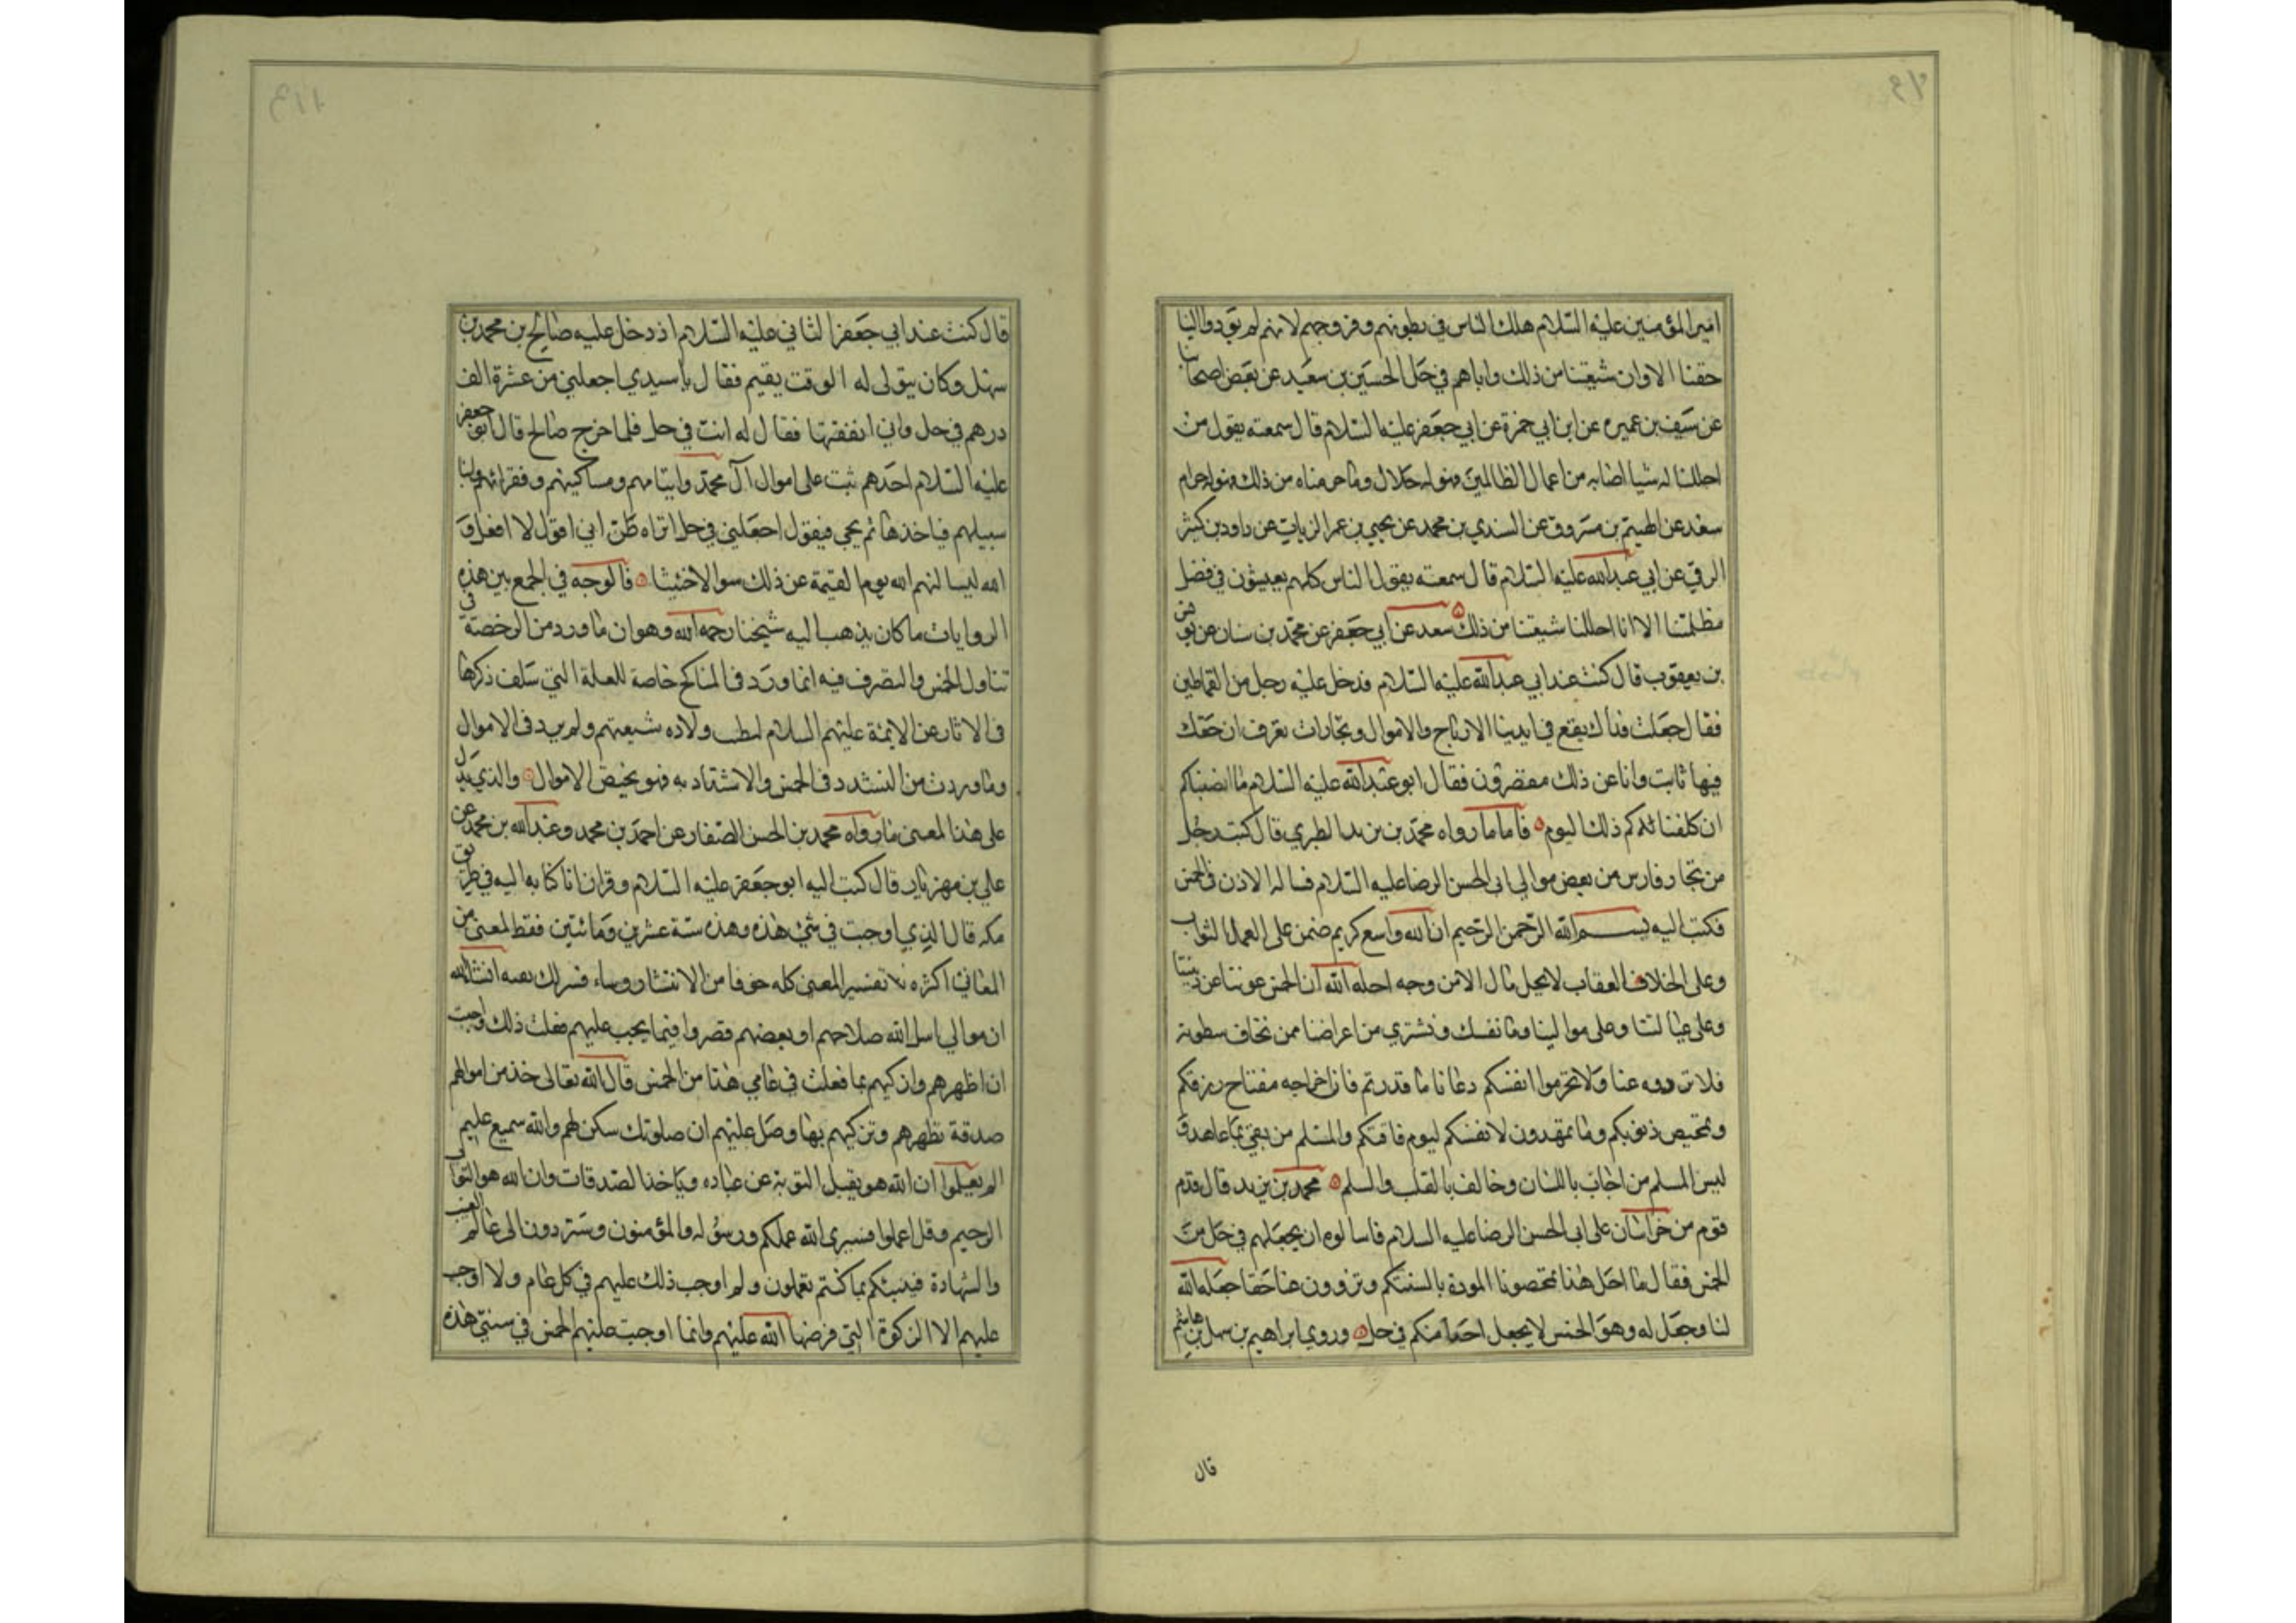 امير المؤمنين عليه السلام هلك الناس في بطونهم وفروجهم لانهم لم يؤدوا الينا
حقنا الا وان شيعتنا من ذلك واباهم في حل الحسين بن سعيد عن بعض اصحابنا
عن سيف بن عميره عن ابن ابي حمزة عن ابي جعفر عليه السلام قال سمعته يقول من
احللنا له شيا اصابه من اعمال الظالمين فهو له حلال وما حرمناه من ذلك فهو له حرام
سعد عن الهيثم بن مسروق عن السندي بن محمد عن يحيي بن عمر الزيات عن داود بن كثير
الرقي عن ابي عبدالله عليه السلام قال سمعته يقول الناس كلهم يعيشون في فضل
مظلمتنا الا انا احللنا شيعتنا من ذلك سعد عن ابي جعفر عن محمد بن سنان عن يونس
بن يعقوب قال كنت عند ابي عبدالله عليه السلام فدخل عليه رجل من القماطين
فقال جعلت فداك يقع في ايدينا الارباح والاموال وتجارات نعرف ان حقك
فيها ثابت وانا عن ذلك مقصرون فقال ابو عبدالله عليه السلام ما انصفناكم
ان كلفناكم ذلك اليوم فاما ما رواه محمد بن يزيد الطبري قال كتب رجل
من تجار فارس من بعض موالي ابي الحسن الرضا عليه السلام فساله الاذن في الخمس
فكتب اليه بسم الله الرحمن الرحيم ان الله واسع كريم ضمن على العمل الثواب
وعلى الخلاف العقاب لا يحل مال الا من وجه احله الله ان الخمس عوننا على ديننا
وعلى عيالنا وعلى موالينا وما نفك ونشتري من اعراضنا ممن نخاف سطوته
فلا تزووه عنا ولا تحرموا انفسكم دعانا ما قدرتم فان اخراجه مفتاح رزقكم
وتمحيص ذنوبكم وما تمهدون لانفسكم ليوم فاقتكم والمسلم من يفي بما عاهد و
ليس المسلم من اجاب باللسان وخالف بالقلب والسلم محمد بن يزيد قال قدم
قوم من خراسان على ابي الحسن الرضا عليه السلام فاسالوه ان يجعلهم في حل من
الخمس فقال ما احل هذا تمحصونا المودة بالسنتكم وتزوون عنا حقا جعله الله
لنا وجعل له وهو الخمس لا يجعل احدا منكم في حل وروي ابراهيم بن سهل بن هاشم
قال
قال كنت عند ابي جعفر الثاني عليه السلام اذ دخل عليه صالح بن محمد بن
سهل وكان يتولى له الوقت بقيم فقال يا سيدي اجعلني من عشرة الف
درهم في حل واني انفقتها فقال له انت في حل فلما خرج صالح قال ابو جعفر
عليه السلام احدهم يثب على اموال آل محمد وايتامهم ومساكينهم وفقرائهم وابنا
سبيلهم فياخذها ثم يجي فيقول اجعلني في حل اتراه ظن اني اقول لا افعل و
الله ليسالنهم الله يوم القيمة عن ذلك سوالا حثيثا فالوجه في الجمع بين هذه
الروايات ما كان يذهب اليه شيخنا رحمه الله وهو ان ما ورد من الرخصة في
تناول الخمس والتصرف فيه انما ورد في المناكح خاصة للعلة التي سلف ذكرها
في الاثار عن الايمة عليهم السلام لطيب ولاده شيعتهم ولم يرد في الاموال
وما وردت من التشدد في الخمس والاشتداد به فهو يخيص الاموال والذي يدل
على هذا المعنى ما رواه محمد بن الحسن الصفار عن احمد بن محمد وعبدالله بن محمد عن
علي بن مهزيار قال كتب اليه ابو جعفر عليه السلام وقران انا كتابه اليه في طريق
مكه قال الذي اوجبت في سني هذه وهذه سنة عشرين ومائتين فقط لمعنى من
المعاني اكره تفسير المعنى كله خوفا من الانتشار وساء فسرلك بعضه انشاالله
ان موالي اسل الله صلاحهم او بعضهم قصروا فيما يجب عليهم فعلت ذلك واجبت
ان اطهرهم وازكيهم بما فعلت في عامي هذا من الخمس قال الله تعالى خذ من اموالهم
صدقة تطهرهم وتزكيهم بها وصل عليهم ان صلوتك سكن لهم والله سميع عليم
الم يعلموا ان الله هو يقبل التوبة عن عباده وياخذ الصدقات وان الله هو التواب
الرحيم وقل اعملوا فسيرى الله عملكم ورسوله والمؤمنون وستردون الى عالم الغيب
والشهادة فينبئكم بما كنتم تعملون ولم اوجب ذلك عليهم في كل عام ولا اوجب
عليهم الا الزكوة التي فرضها الله عليهم وانما اوجبت عليهم الخمس في سنتي هذه